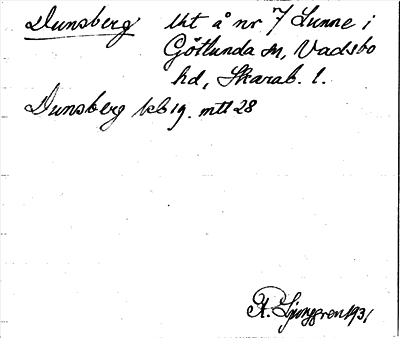 Dunsberg lht å nr 7 Sunne i
Götlunda sn, Vadsbo
hd, Skarab. l.
Dunsberg kb 19. mtl 28
A. Ljunggren 1931